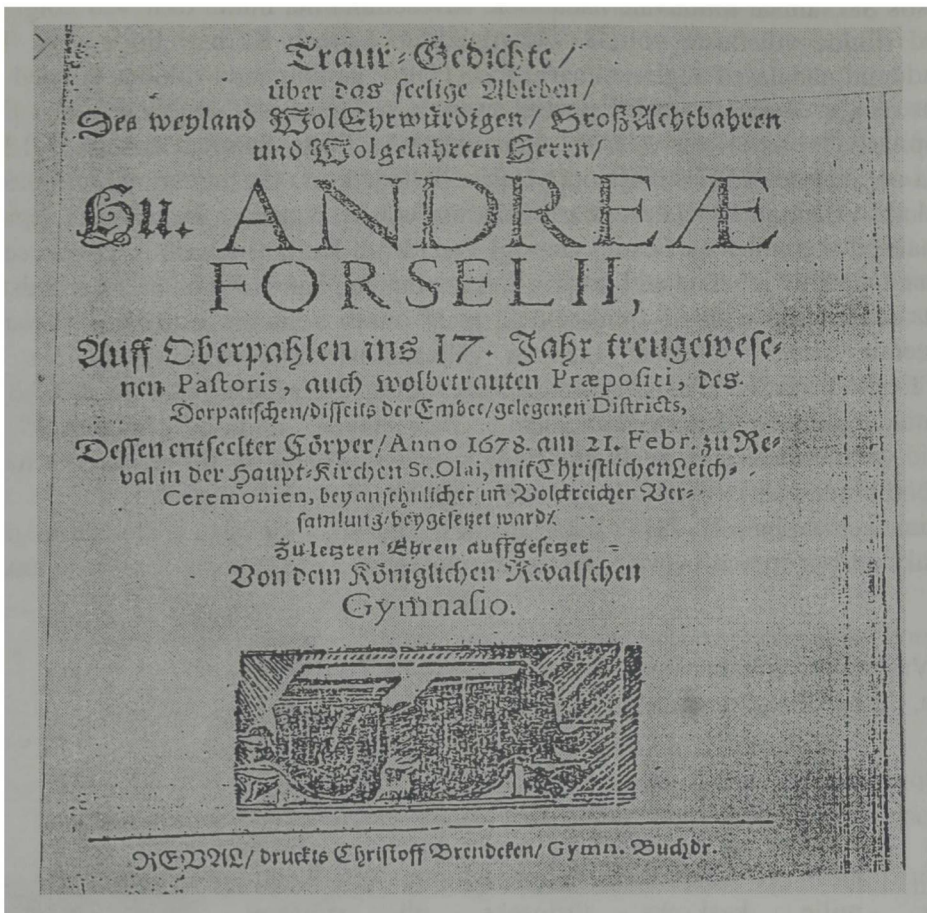 Traur-Gedichte/
über das seelige Ableben/
Des weyland WolEhrwürdigen/ GroßAchtbahren
und Wolgelahrten Herrn/
Hn. ANDREÆ
FORSELII,
Auff Oberpahlen ins 17. Jahr treugewese-
nen Pastoris, auch wolbetrauten Præpositi, des
Dorpatischen/disseits der Embec/gelegenen Districts,
Dessen entseelter Cörper/Anno 1678. am 21. Febr. zu Re-
val in der Haupt-Kirchen St. Olai, mit Christlichen Leich-
Ceremonien, bey ansehnlicher uñ Volckreicher Ver-
samlung/beygesetzet ward/
Zu letzten Ehren auffgesetzet
Von dem Königlichen Revalschen
Gymnasio.
REVAL/ druckts Christoff Brendeken/ Gymn. Buchdr.